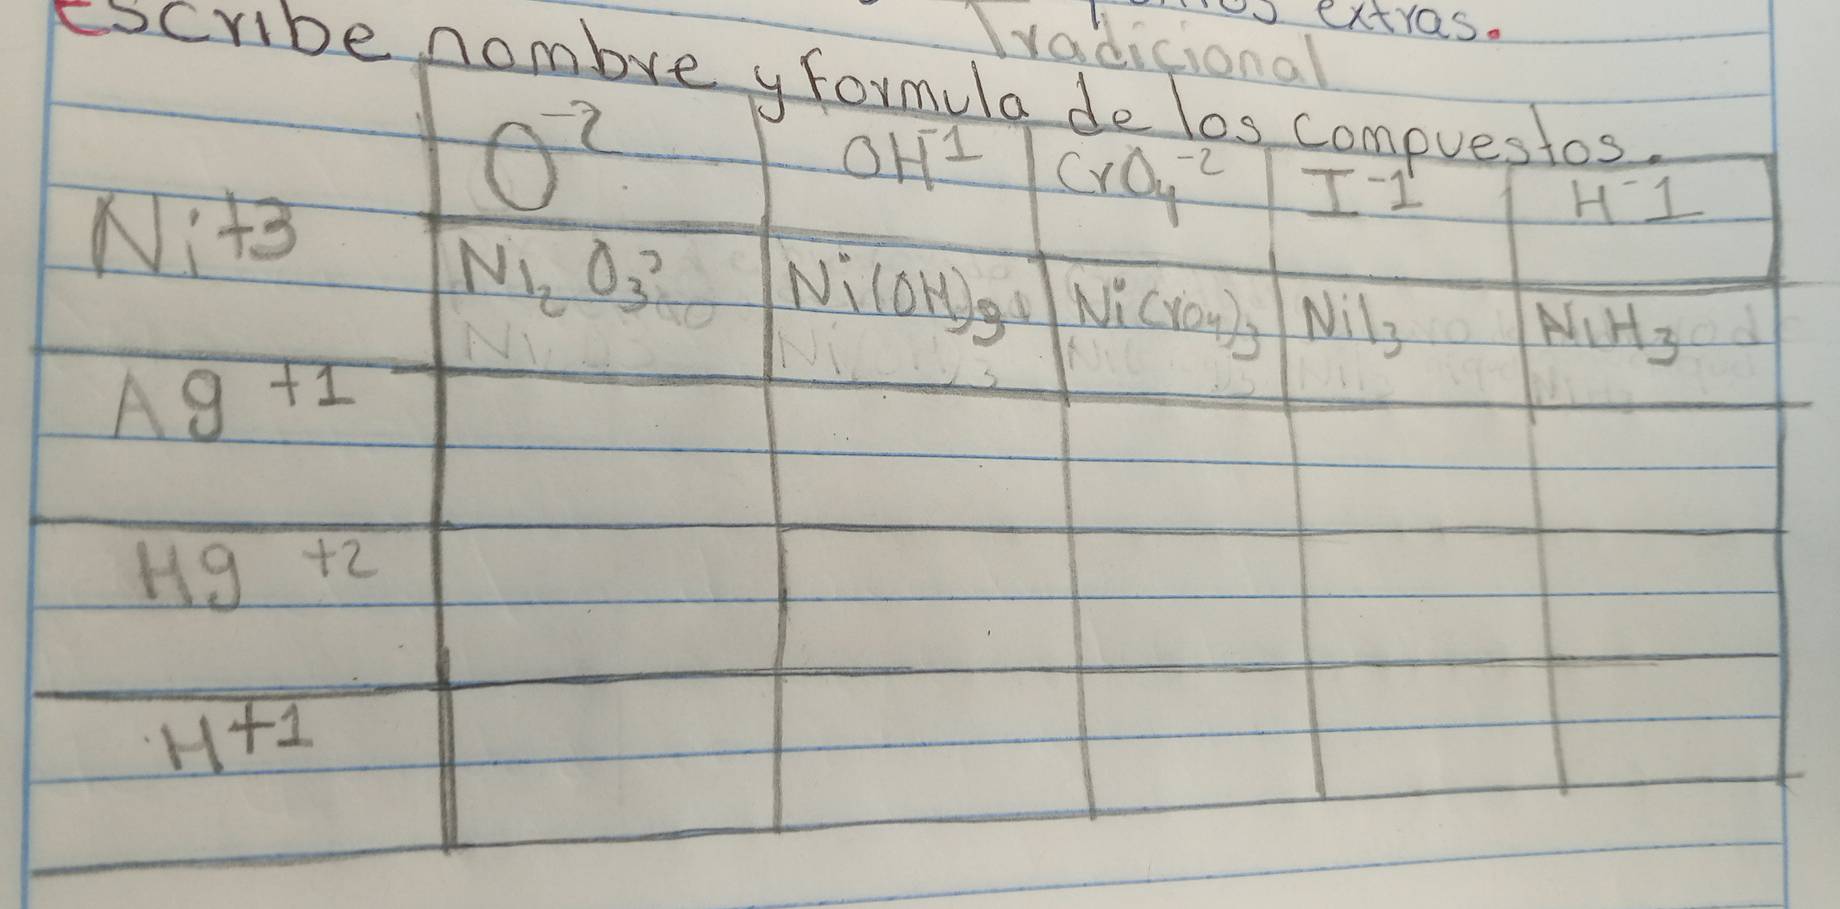 extras.
Tradicional
Escribe nombre y Formula de los compuestos.
O-2 OH-1 CrO4-2 I-1 H-1
Ni+3 Ni2 O3 Ni(OH)3 Ni(CrO4)3 NiI3 NiH3
Ag +1
Hg +2
H+1